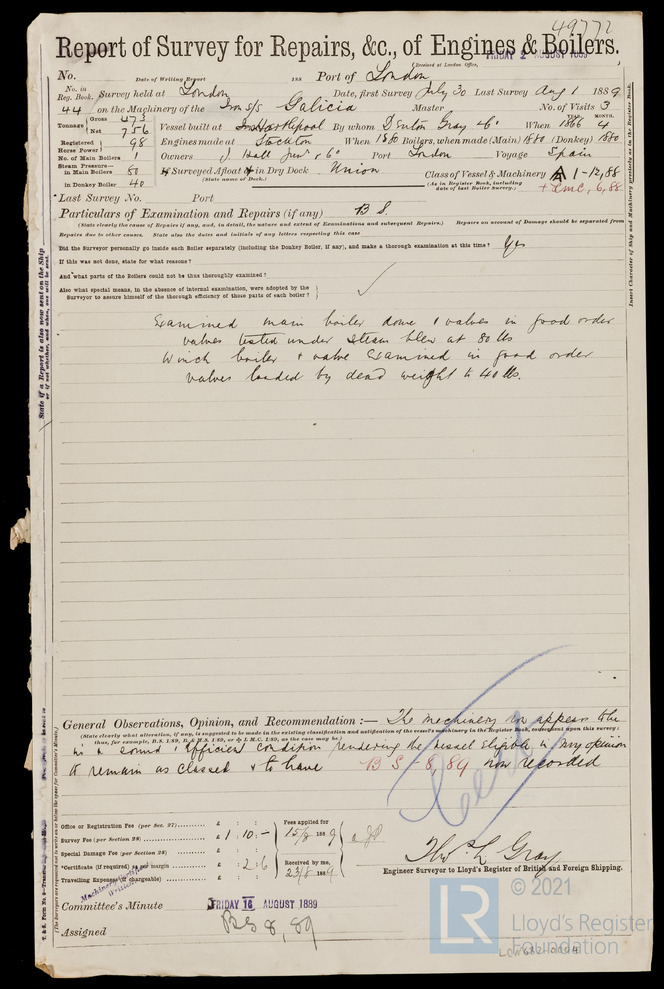 49772
Report of Survey for Repairs, &c., of Engines & Boilers.
(Received at London Office, FRIDAY 2 AUGUST 1889
No. Date of Writing Report 188 Port of London
No. in Reg. Book. Survey held at London Date, first Survey July 30 Last Survey Aug 1 1889
44 on the Machinery of the Iron S/S Galicia Master No. of Visits 3
Tonnage Gross 473 Net 756 Vessel built at W. Hartlepool By whom Denton Gray & Co When YEAR. 1866 MONTH. 4
Registered Horse Power 98 Engines made at Stockton When 1880 Boilers, when made (Main) 1880 (Donkey) 1880
No. of Main Boilers 1 Owners J. Hall Junr & Co Port London Voyage Spain
Steam Pressure— in Main Boilers 80 If Surveyed Afloat or in Dry Dock Union Class of Vessel & Machinery A 1-12,88
in Donkey Boiler 40 (State name of Dock.) (As in Register Book, including date of last Boiler Survey.) + LMC, 6,88
Last Survey No. Port
Particulars of Examination and Repairs (if any) B S.
(State clearly the cause of Repairs if any, and, in detail, the nature and extent of Examinations and subsequent Repairs.) Repairs on account of Damage should be separated from
Repairs due to other causes. State also the dates and initials of any letters respecting this case
Did the Surveyor personally go inside each Boiler separately (including the Donkey Boiler, if any), and make a thorough examination at this time? Yes
If this was not done, state for what reasons?
And what parts of the Boilers could not be thus thoroughly examined?
Also what special means, in the absence of internal examination, were adopted by the
Surveyor to assure himself of the thorough efficiency of those parts of each boiler?
Examined main boiler dome & valves in good order
valves tested under steam blew at 80 lbs
Winch boiler & valve Examined in good order
valves loaded by dead weight to 40 lbs.
General Observations, Opinion, and Recommendation:— The machinery now appears to be
(State clearly what alteration, if any, is suggested to be made in the existing classification and notification of the vessel's machinery in the Register Book, consequent upon this survey:
thus, for example, B.S. 1/89, B. & M.S. 1/89, or L.M.C. 1/89, as the case may be.)
in a sound & efficient condition rendering the vessel eligible in my opinion
to remain as classed & to have B S - 8,89 now recorded
Office or Registration Fee (per Sec. 27) £ : : Fees applied for
Survey Fee (per Section 28) £ 1 : 10 : - 15/8 1889
Special Damage Fee (per Section 28) £ : :
*Certificate (if required) as per margin £ : 2 : 6 Received by me,
Travelling Expenses (if chargeable) £ : : 23/8 1889
Engineer Surveyor to Lloyd's Register of British and Foreign Shipping.
Committee's Minute FRIDAY 16 AUGUST 1889
Assigned BS 8,89
© 2021
LR
Lloyd's Register
Foundation
State if a Report is also now sent on the Ship
or if not whether, and when, one will be sent.
Insert Character of Ship and Machinery precisely as in the Register Book.